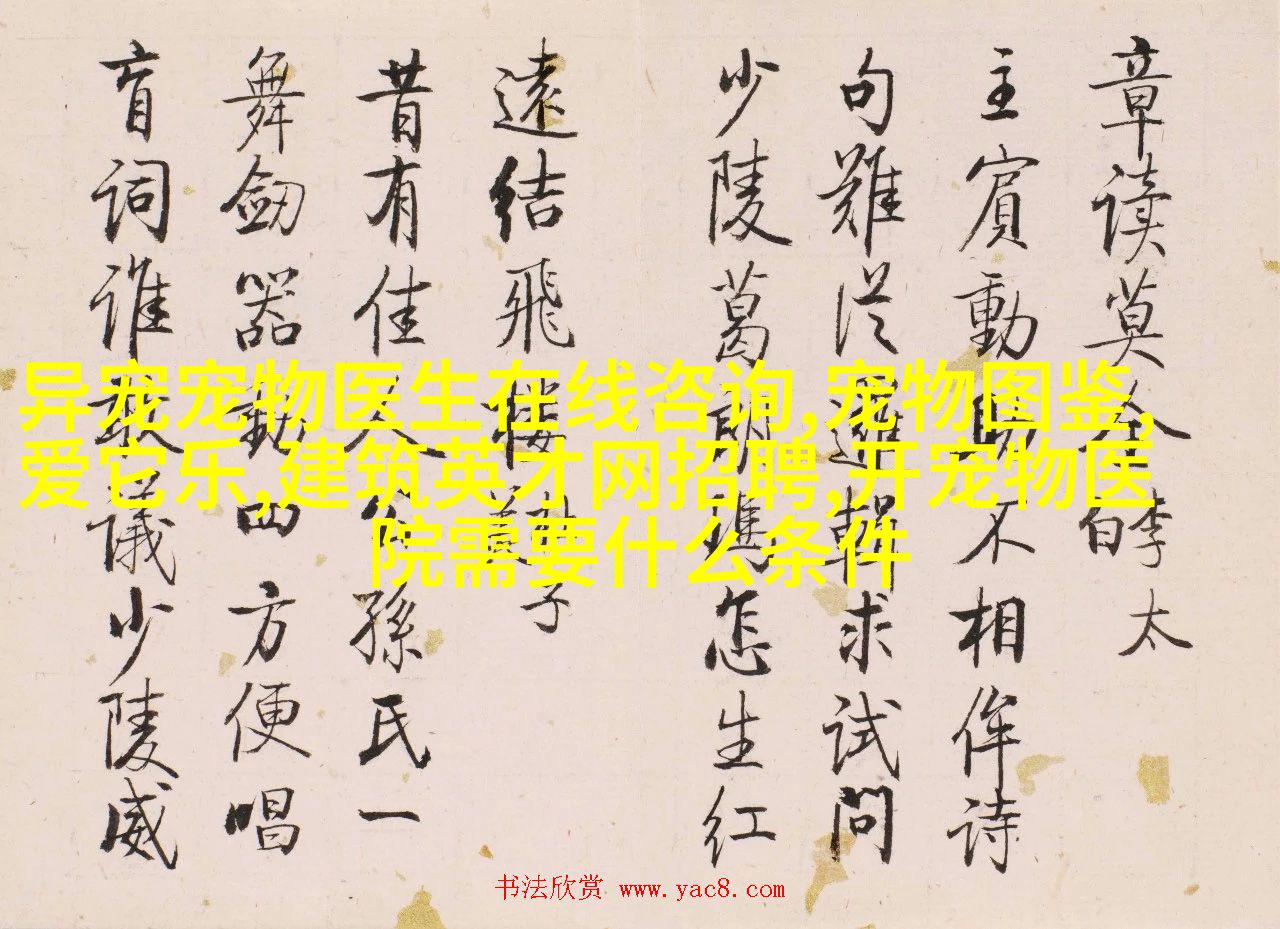 章读莫
主賓動不相侔诗
句難從難求试問
少陵葛怎生红
遠结飛樓子
昔有佳人公孫氏一
舞劒器動四方便唱
盲词谁敢議少陵威
白李太
异宠宠物医生在线咨询,宠物图鉴,
爱它乐,建筑英才网招聘,开宠物医
院需要什么条件
书法欣赏 www.yac8.com